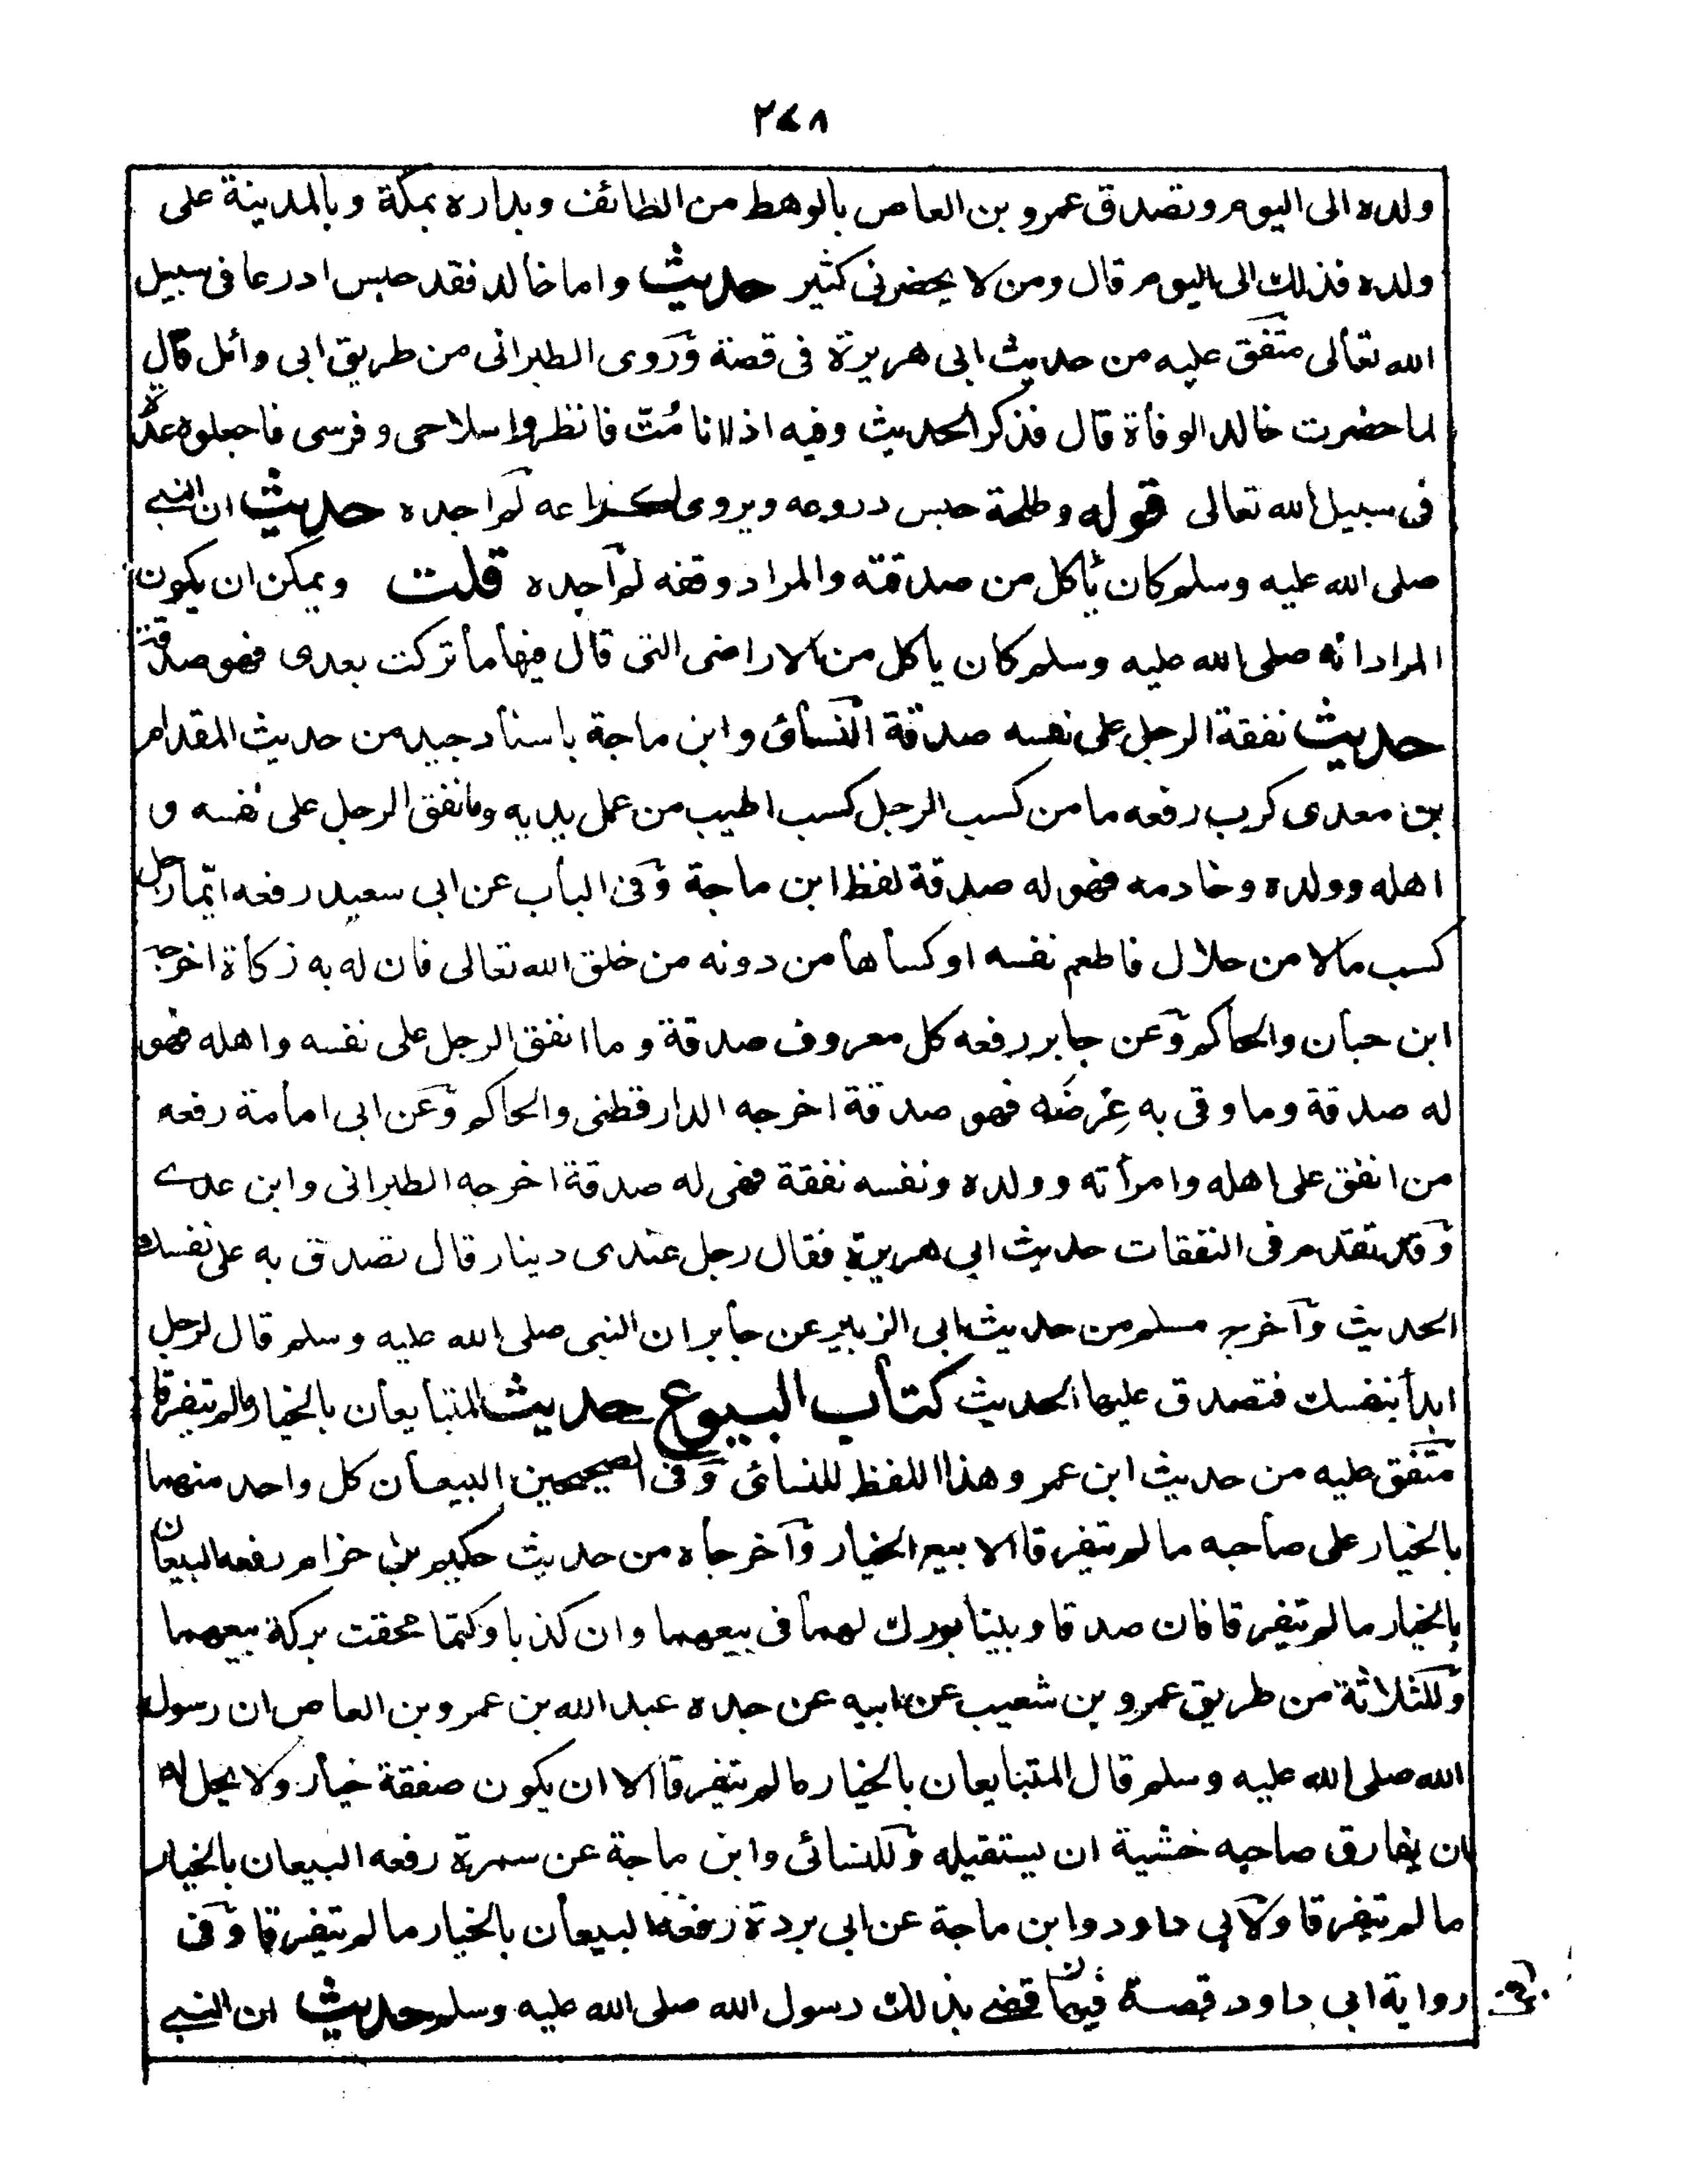 ٢٧٨
ولده الى اليوم وتصدق عمرو بن العاص بالوهط من الطائف وبداره بمكة وبالمدينة على
ولده فذلك الى اليوم قال ومن لا يحضرنى كثير حديث واما خالد فقد حبس ادرعا فى سبيل
الله تعالى متفق عليه من حديث ابى هريرة فى قصة وروى الطبرانى من طريق ابى وائل قال
لما حضرت خالد الوفاة قال فذكر الحديث وفيه اذا انا مُتّ فانظروا سلاحى وفرسى فاجعلوه عدة
فى سبيل الله تعالى قوله وطلحة حبس دروعه ويروى لم اجده حديث ان النبي
صلى الله عليه وسلم كان يأكل من صدقته والمراد وقفه لم اجده قلت ويمكن ان يكون
المراد انه صلى الله عليه وسلم كان ياكل من الاراضى التى قال فيها ما تركت بعدى فهو صدقة
حديث نفقة الرجل على نفسه صدقة النسائى وابن ماجة باسناد جيد من حديث المقدام
بن معدى كرب رفعه ما من كسب الرجل كسب اطيب من عمل يديه وما نفق الرجل على نفسه و
اهله وولده وخادمه فهو له صدقة لفظ ابن ماجة وفى الباب عن ابى سعيد رفعه ايّما رجل
كسب مالا من حلال فاطعم نفسه او كساها من دونه من خلق الله تعالى فان له به زكاة اخرجه
ابن حبان والحاكم وعن جابر رفعه كل معروف صدقة وما انفق الرجل على نفسه واهله فهو
له صدقة وما وقى به عِرضَه فهو صدقة اخرجه الدارقطنى والحاكم وعن ابى امامة رفعه
من انفق على اهله وامرأته وولده ونفسه نفقة فهى له صدقة اخرجه الطبرانى وابن عدي
وقد تقدم فى النفقات حديث ابى هريرة فقال رجل عندى دينار قال تصدق به على نفسك
الحديث وآخرج مسلم من حديث ابى الزبير عن جابر ان النبى صلى الله عليه وسلم قال لرجل
ابدأ بنفسك فتصدق عليها الحديث كتاب البيوع حديث المتبايعان بالخيار مالم يتفرقا
متفق عليه من حديث ابن عمر وهذا اللفظ للنسائى وفى الصحيحين البيعان كل واحد منهما
بالخيار على صاحبه ما لم يتفرقا الا بيع الخيار وآخرجاه من حديث حكيم بن حزام رفعه البيعان
بالخيار ما لم يتفرقا فان صدقا وبينا بورك لهما فى بيعهما وان كذبا وكتما محقت بركة بيعهما
وللثلاثة من طريق عمرو بن شعيب عن ابيه عن جده عبد الله بن عمرو بن العاص ان رسول
الله صلى الله عليه وسلم قال المتبايعان بالخيار ما لم يتفرقا الا ان يكون صفقة خيار ولا يحل له
ان يفارق صاحبه خشية ان يستقيله وللنسائى وابن ماجة عن سمرة رفعه البيعان بالخيار
ما لم يتفرقا ولابى داود وابن ماجة عن ابى بردة رفعه البيعان بالخيار ما لم يتفرقا وفى
رواية ابى داود قصة فيها قضى بذلك رسول الله صلى الله عليه وسلم حديث ان النبي